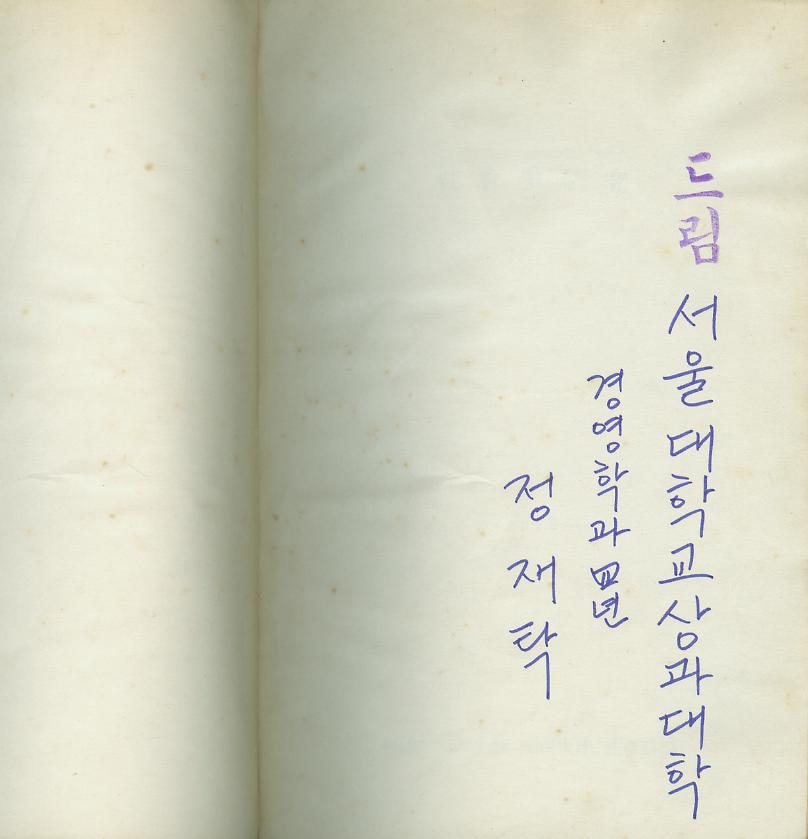 드림
서울대학교상과대학
경영학과 四년
정재탁